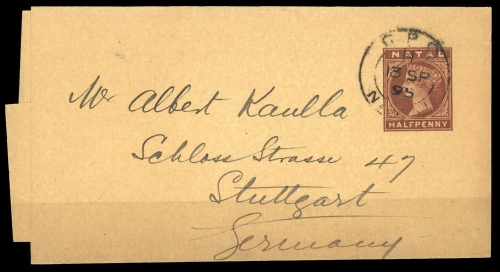 G.P.O.
3 SP
95
NATAL
HALFPENNY
Mr Albert Kaulla
Schloss Strasse 47
Stuttgart
Germany